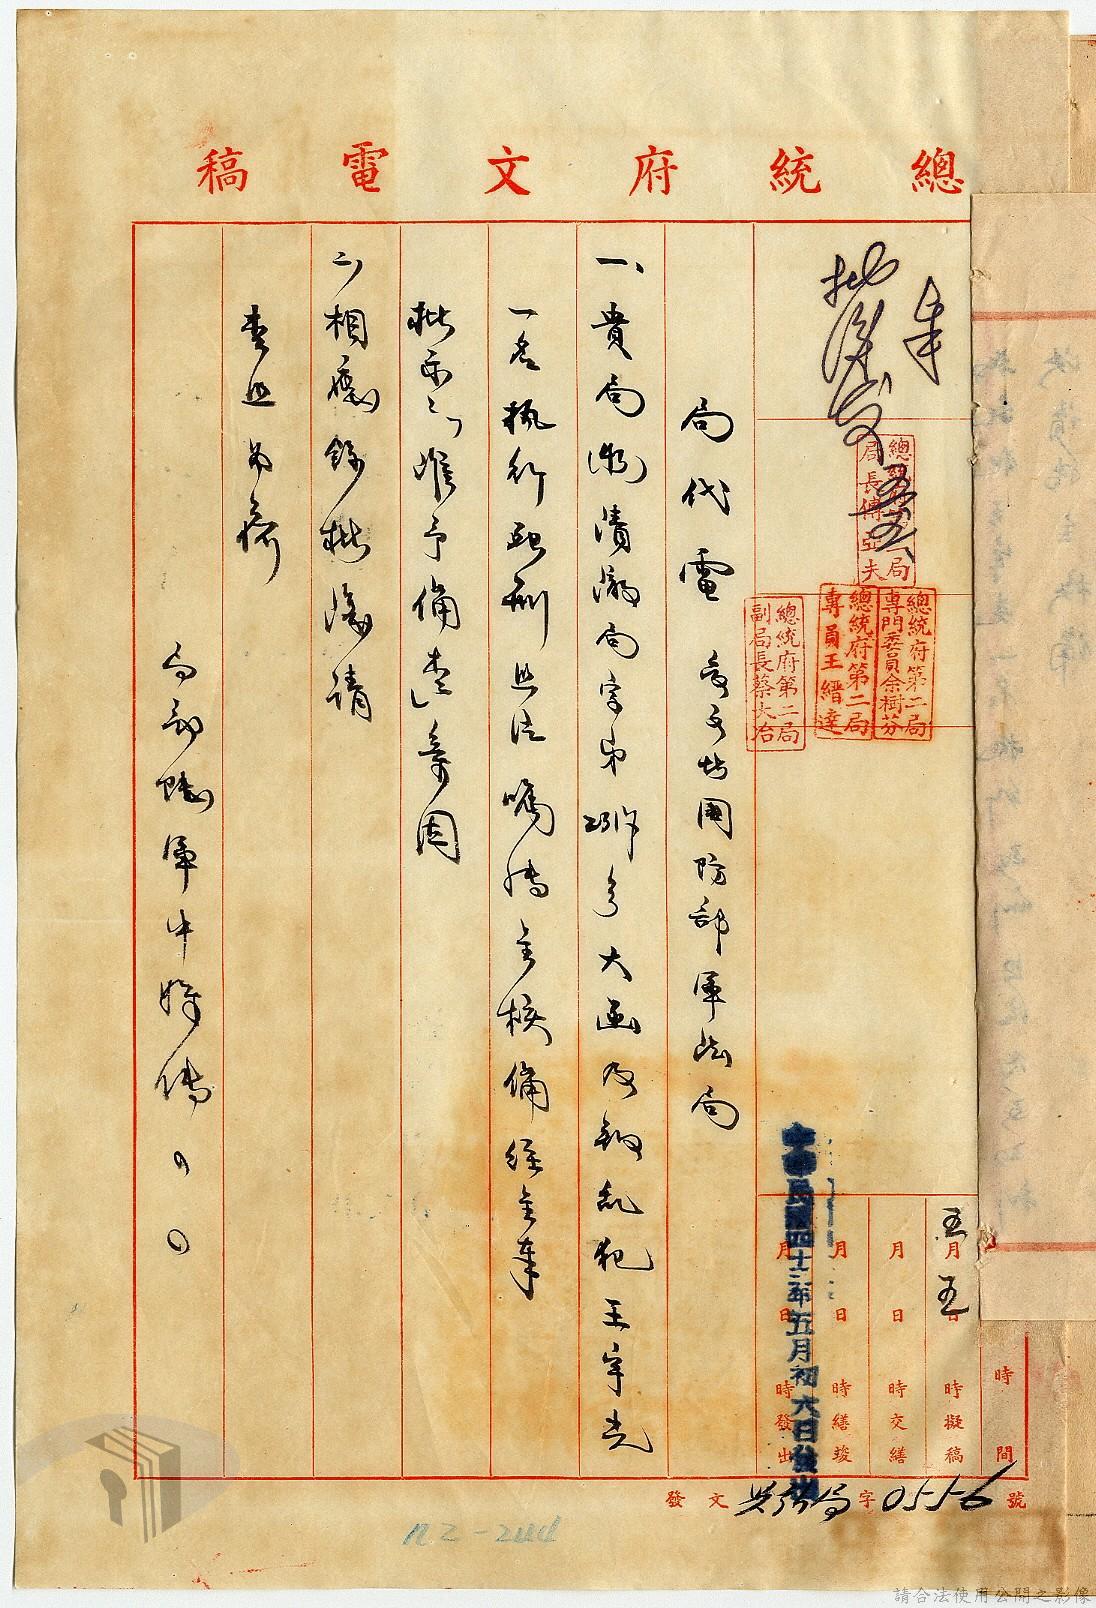 總統府文電稿
奉
批後發 五六
總統府第二局局長傅亞夫
總統府第二局專門委員余樹芬
總統府第二局專員王縉達
總統府第二局副局長蔡大冶
時間
五月五日 時擬稿
月 日 時交繕
月 日 時繕竣
月 日 時發出
中華民國四十二年五月初六日發出
局代電 受文者國防部軍法局
一、貴局 字第 號大函及叛亂犯王宇光
一名執行死刑照片囑轉呈核備經呈奉
批示「准予備查」等因
二、相應錄批復請
查照為荷
陸軍中將傅
發文 字0556號
02-244
請合法使用公開之影像